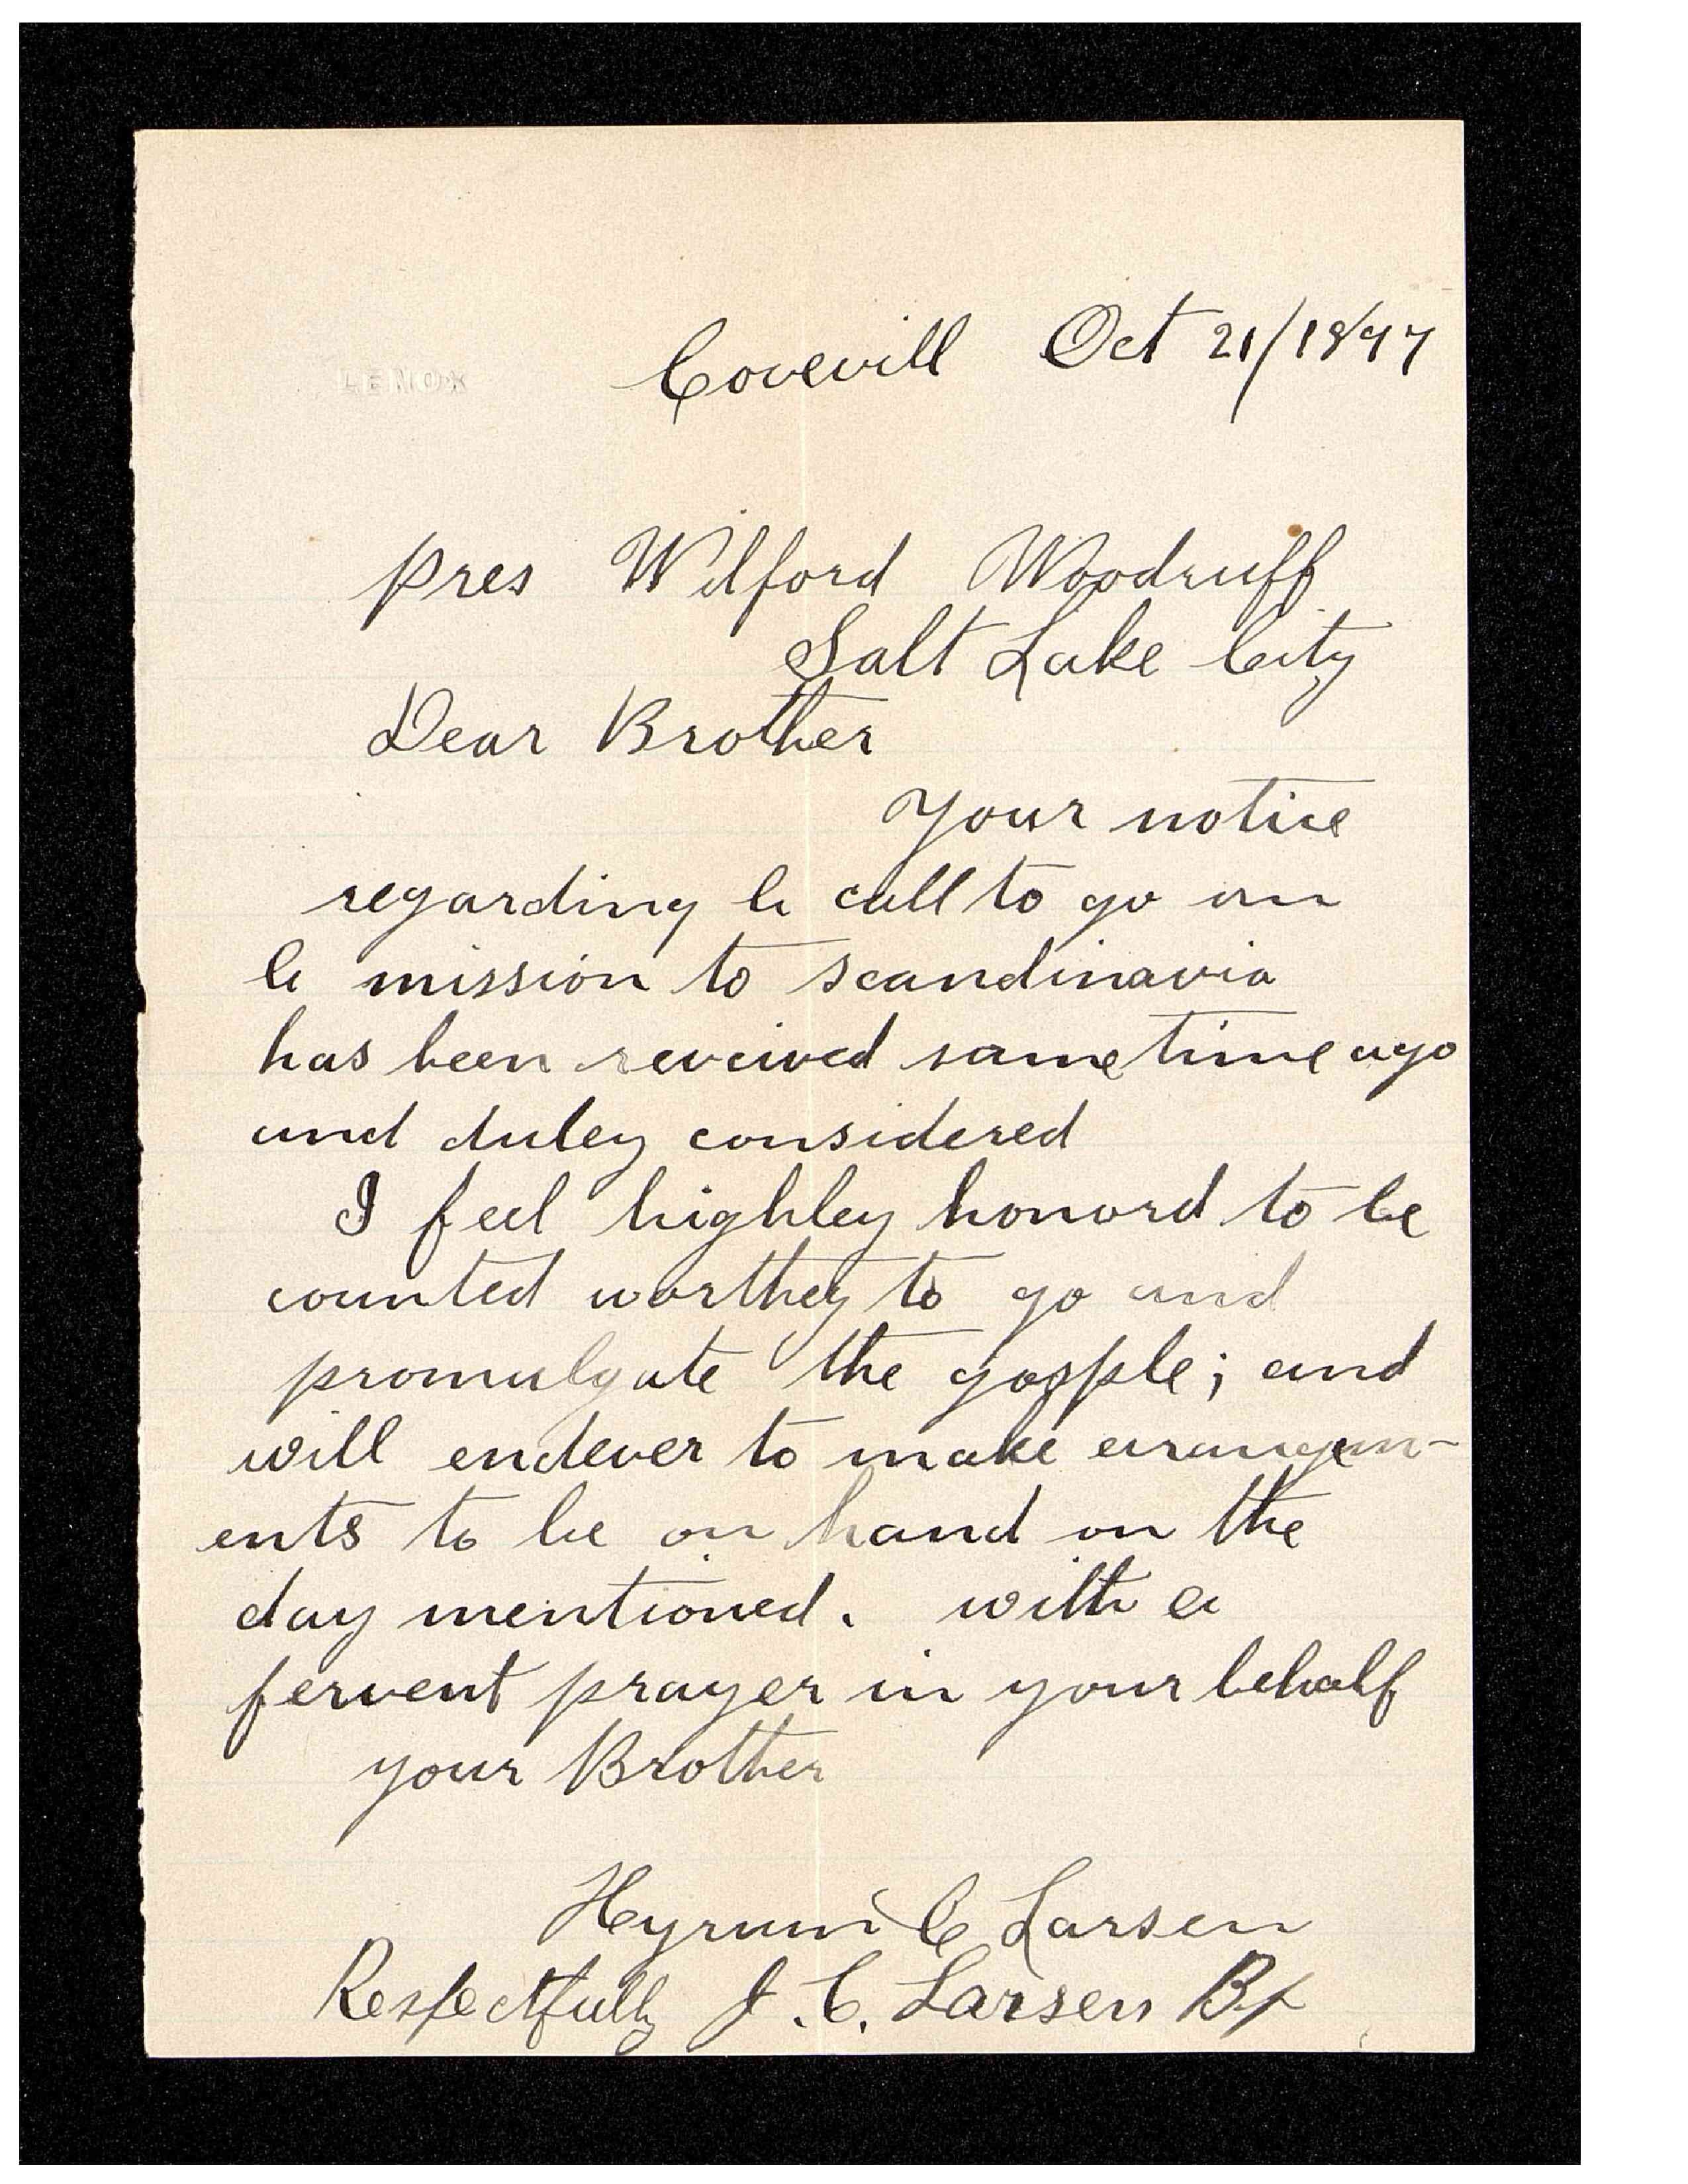 LENOX
Covevill Oct 21/1897
pres Wilford Woodruff
Salt Lake City
Dear Brother
Your notice
regarding a call to go on
a mission to scandinavia
has been reveived some time ago
and duley considered
I feel highley honord to be
counted worthey to go and
promulgate the gospple; and
will endever to make arangem-
ents to be on hand on the
day mentioned. with a
fervent prayer in your behalf
your Brother
Hyrum C Larsen
Respectfully J. C. Larsen Bp